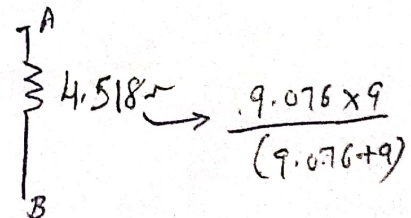 A
4.518Ω → .9.076 × 9
(9.076+9)
B